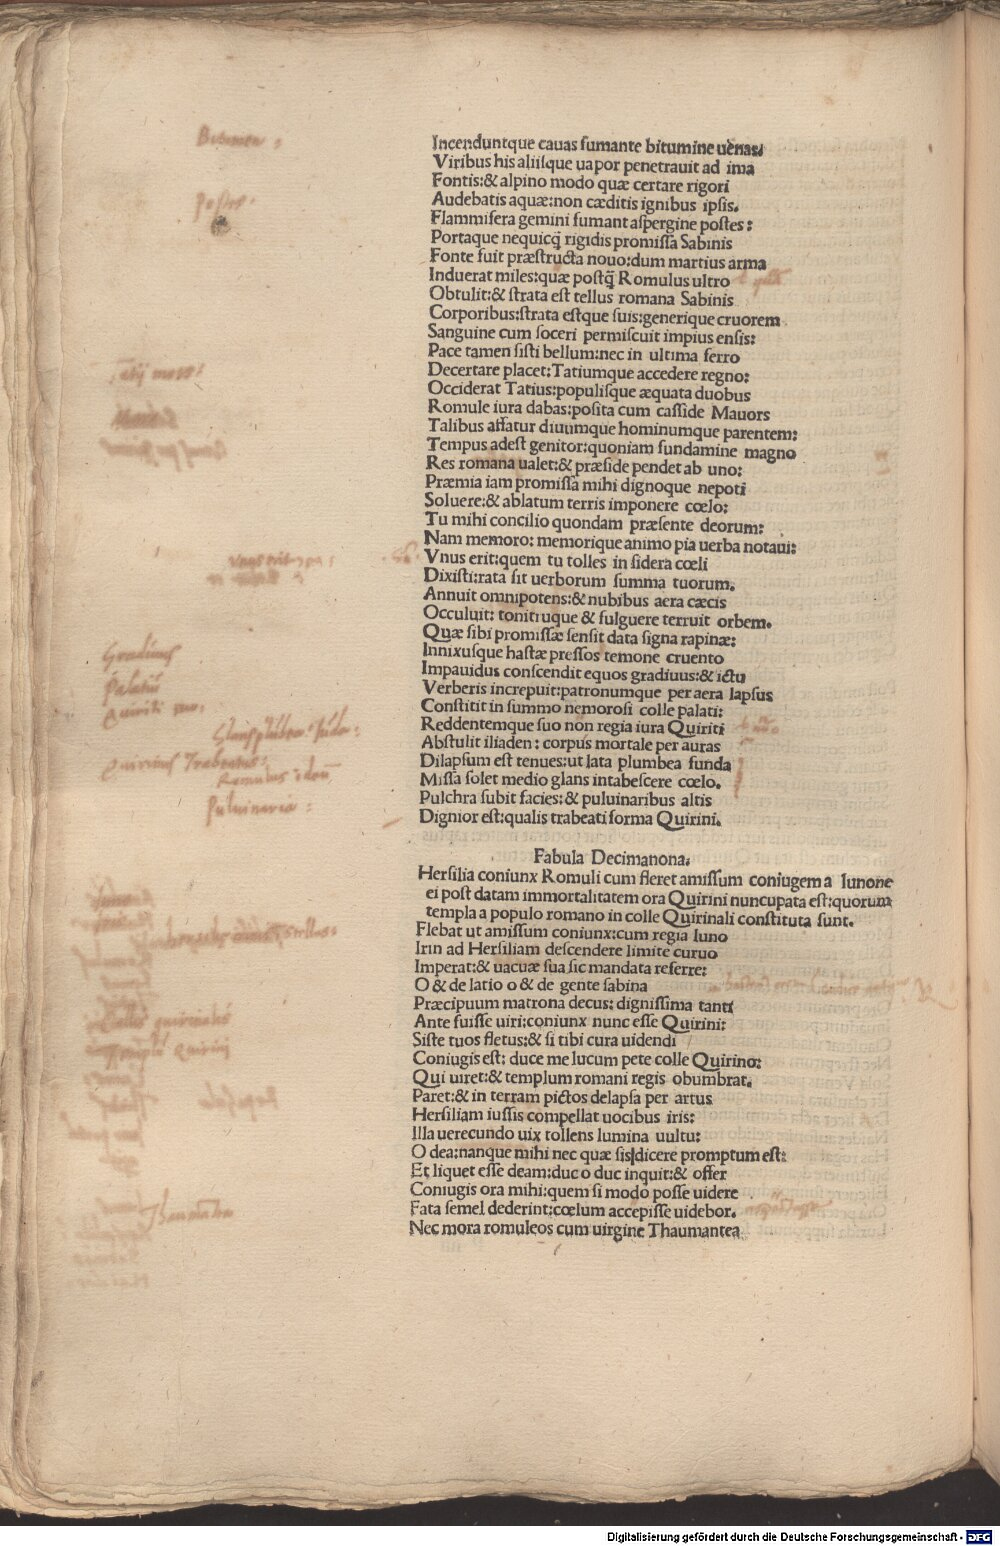 Incenduntque cauas fumante bitumine uenas:
Viribus his aliisque uapor penetrauit ad ima
Fontis:& alpino modo quæ certare rigori
Audebatis aquæ:non cæditis ignibus ipsis.
Flammifera gemini fumant aspergine postes:
Portaque nequicq̃ rigidis promissa Sabinis
Fonte fuit præstructa nouo:dum martius arma
Induerat miles:quæ postq̃ Romulus ultro
Obtulit:& strata est tellus romana Sabinis
Corporibus:strata estque suis:generique cruorem
Sanguine cum soceri permiscuit impius ensis:
Pace tamen sisti bellum:nec in ultima ferro
Decertare placet:Tatiumque accedere regno:
Occiderat Tatius:populisque æquata duobus
Romule iura dabas:posita cum casside Mauors
Talibus affatur diuumque hominumque parentem:
Tempus adest genitor:quoniam fundamine magno
Res romana ualet:& præside pendet ab uno:
Præmia iam promissa mihi dignoque nepoti
Soluere:& ablatum terris imponere cœlo:
Tu mihi concilio quondam præsente deorum:
Nam memoro: memorique animo pia uerba notaui:
Vnus erit:quem tu tolles in sidera cœli
Dixisti:rata sit uerborum summa tuorum.
Annuit omnipotens:& nubibus aera cæcis
Occuluit: tonitruque & fulguere terruit orbem.
Quæ sibi promissæ sensit data signa rapinæ:
Innixusque hastæ pressos temone cruento
Impauidus conscendit equos gradiuus:& ictu
Verberis increpuit:patronumque per aera lapsus
Constitit in summo nemorosi colle palati:
Reddentemque suo non regia iura Quiriti
Abstulit iliaden: corpus mortale per auras
Dilapsum est tenues:ut lata plumbea funda
Missa solet medio glans intabescere cœlo.
Pulchra subit facies:& puluinaribus altis
Dignior est:qualis trabeati forma Quirini.
Fabula Decimanona.
Hersilia coniunx Romuli cum fleret amissum coniugem a Iunone
ei post datam immortalitatem ora Quirini nuncupata est:quorum
templa a populo romano in colle Quirinali constituta sunt.
Flebat ut amissum coniunx:cum regia Iuno
Irin ad Hersiliam descendere limite curuo
Imperat:& uacuæ sua sic mandata referre:
O & de latio o & de gente sabina
Præcipuum matrona decus: dignissima tanti
Ante fuisse uiri:coniunx nunc esse Quirini:
Siste tuos fletus:& si tibi cura uidendi
Coniugis est: duce me lucum pete colle Quirino:
Qui uiret:& templum romani regis obumbrat.
Paret:& in terram pictos delapsa per artus
Hersiliam iussis compellat uocibus iris:
Illa uerecundo uix tollens lumina uultu:
O dea:nanque mihi nec quæ sis dicere promptum est:
Et liquet esse deam:duc o duc inquit:& offer
Coniugis ora mihi:quem si modo posse uidere
Fata semel dederint:cœlum accepisse uidebor.
Nec mora romuleos cum uirgine Thaumantea
Bitumen
Postes
Gradiuus
Palatiū
Quiriti
Quirinus Trabeatus
Puluinaria
Digitalisierung gefördert durch die Deutsche Forschungsgemeinschaft - DFG